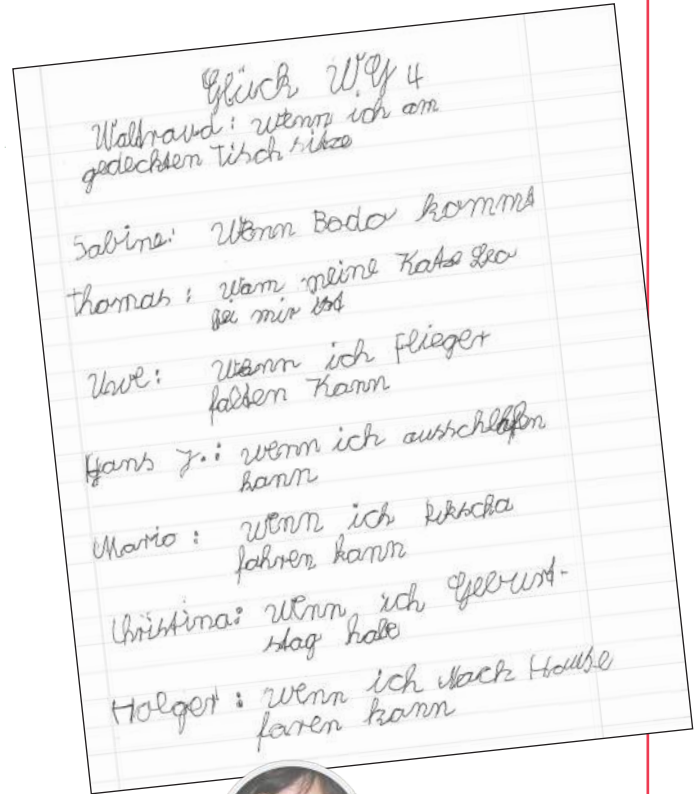 Glück WG 4
Waltraud: wenn ich am
gedeckten Tisch sitze
Sabine: Wenn Bodo kommt
Thomas: wenn meine Katze Leo
bei mir ist
Uwe: Wenn ich Flieger
falten Kann
Hans J.: wenn ich ausschlafen
kann
Mario: wenn ich Rikscha
fahren kann
Christina: wenn ich Geburt-
stag habe
Holger: wenn ich Nach Hause
faren kann